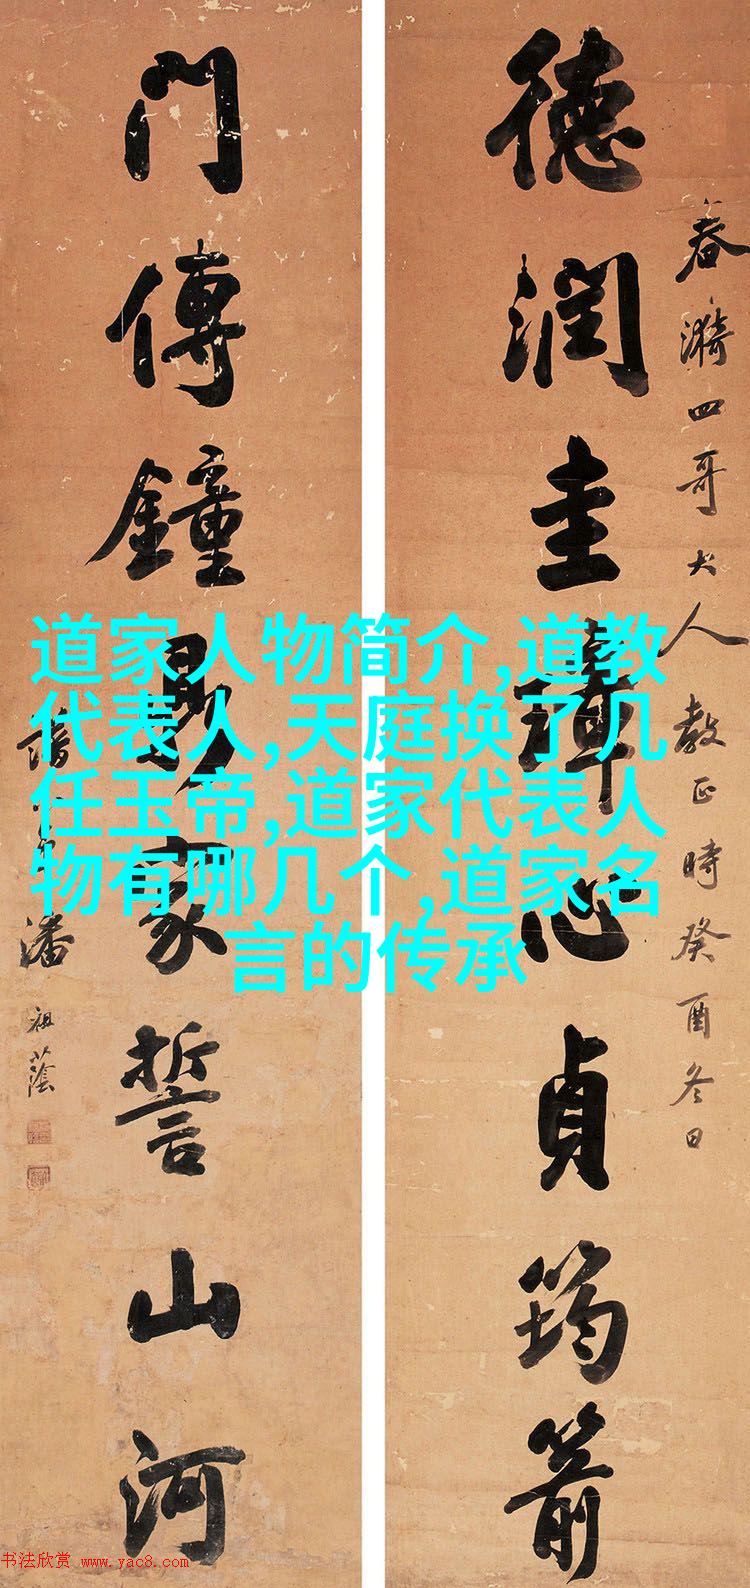 春漪四哥大人教正時癸酉冬日
德潤圭璋心貞筠箭
門傳鐘鼎家誓山河
潘祖蔭
道家人物简介,道教
代表人,天庭换了几
任玉帝,道家代表人
物有哪几个,道家名
言的传承
书法欣赏 www.yac8.com